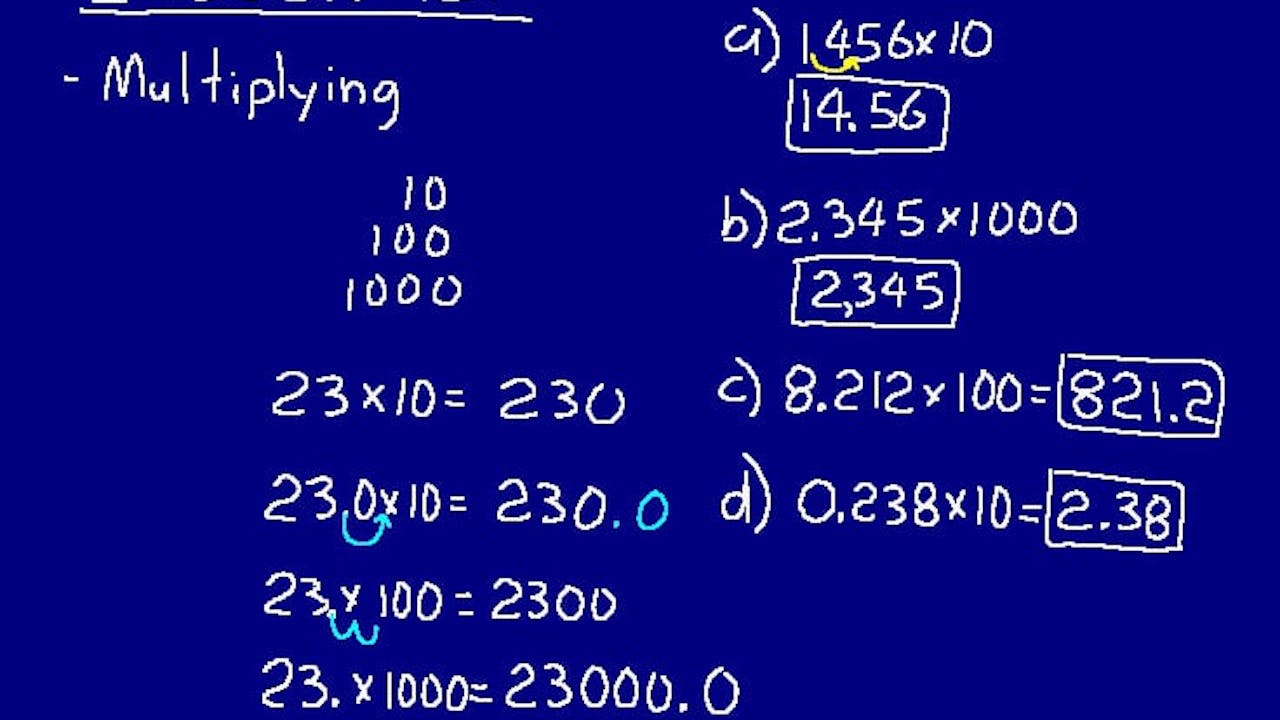 - Multiplying
10
100
1000
23 × 10 = 230
23.0 × 10 = 230.0
23. × 100 = 2300
23. × 1000 = 23000.0
a) 1.456 × 10
14.56
b) 2.345 × 1000
2,345
c) 8.212 × 100 = 821.2
d) 0.238 × 10 = 2.38